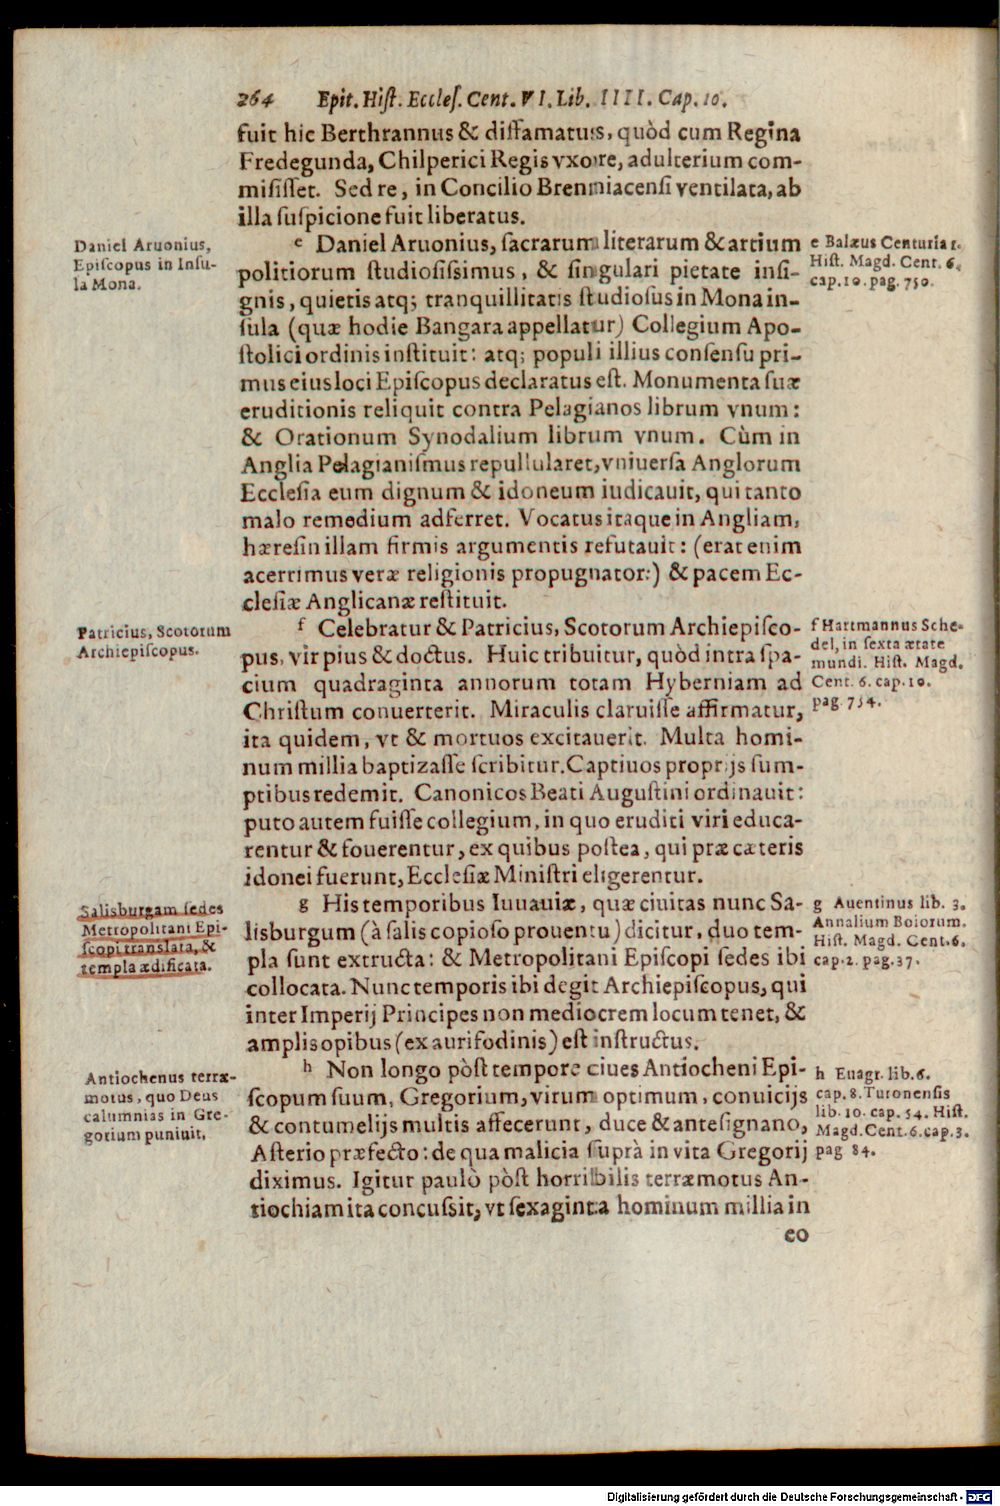 264 Epit. Hiſt. Eccleſ. Cent. VI. Lib. IIII. Cap. 10.
fuit hic Berthrannus & diffamatus, quòd cum Regina
Fredegunda, Chilperici Regis vxore, adulterium com-
miſiſſet. Sed re, in Concilio Brenniacenſi ventilata, ab
illa ſuſpicione fuit liberatus.
Daniel Aruonius,
Epiſcopus in Inſu-
la Mona.
e Daniel Aruonius, ſacrarum literarum & artium
politiorum ſtudioſiſsimus, & ſingulari pietate inſi-
gnis, quietis atq; tranquillitatis ſtudioſus in Mona in-
ſula (quæ hodie Bangara appellatur) Collegium Apo-
ſtolici ordinis inſtituit: atq; populi illius conſenſu pri-
mus eius loci Epiſcopus declaratus eſt. Monumenta ſuæ
eruditionis reliquit contra Pelagianos librum vnum:
& Orationum Synodalium librum vnum. Cùm in
Anglia Pelagianiſmus repullularet, vniuerſa Anglorum
Eccleſia eum dignum & idoneum iudicauit, qui tanto
malo remedium adferret. Vocatus itaque in Angliam,
hæreſin illam firmis argumentis refutauit: (erat enim
acerrimus veræ religionis propugnator:) & pacem Ec-
cleſiæ Anglicanæ reſtituit.
e Balæus Centuria 1.
Hiſt. Magd. Cent. 6.
cap. 10. pag. 750.
Patricius, Scotorum
Archiepiſcopus.
f Celebratur & Patricius, Scotorum Archiepiſco-
pus, vir pius & doctus. Huic tribuitur, quòd intra ſpa-
cium quadraginta annorum totam Hyberniam ad
Chriſtum conuerterit. Miraculis claruiſſe affirmatur,
ita quidem, vt & mortuos excitauerit. Multa homi-
num millia baptizaſſe ſcribitur. Captiuos proprijs ſum-
ptibus redemit. Canonicos Beati Auguſtini ordinauit:
puto autem fuiſſe collegium, in quo eruditi viri educa-
rentur & fouerentur, ex quibus poſtea, qui præ cæteris
idonei fuerunt, Eccleſiæ Miniſtri eligerentur.
f Hartmannus Sche-
del, in ſexta ætate
mundi. Hiſt. Magd.
Cent. 6. cap. 10.
pag. 754.
Salisburgam ſedes
Metropolitani Epi-
ſcopi translata, &
templa ædificata.
g His temporibus Iuuauiæ, quæ ciuitas nunc Sa-
lisburgum (à ſalis copioſo prouentu) dicitur, duo tem-
pla ſunt extructa: & Metropolitani Epiſcopi ſedes ibi
collocata. Nunc temporis ibi degit Archiepiſcopus, qui
inter Imperij Principes non mediocrem locum tenet, &
amplis opibus (ex aurifodinis) eſt inſtructus.
g Auentinus lib. 3.
Annalium Boiorum.
Hiſt. Magd. Cent. 6.
cap. 2. pag. 37.
Antiochenus terræ-
motus, quo Deus
calumnias in Gre-
gorium puniuit.
h Non longo pòſt tempore ciues Antiocheni Epi-
ſcopum ſuum, Gregorium, virum optimum, conuicijs
& contumelijs multis affecerunt, duce & anteſignano,
Aſterio præfecto: de qua malicia ſuprà in vita Gregorij
diximus. Igitur paulò pòſt horribilis terræmotus An-
tiochiam ita concuſsit, vt ſexaginta hominum millia in
eo
h Euagr. lib. 6.
cap. 8. Turonenſis
lib. 10. cap. 54. Hiſt.
Magd. Cent. 6. cap. 3.
pag 84.
Digitalisierung gefördert durch die Deutsche Forschungsgemeinschaft - DFG